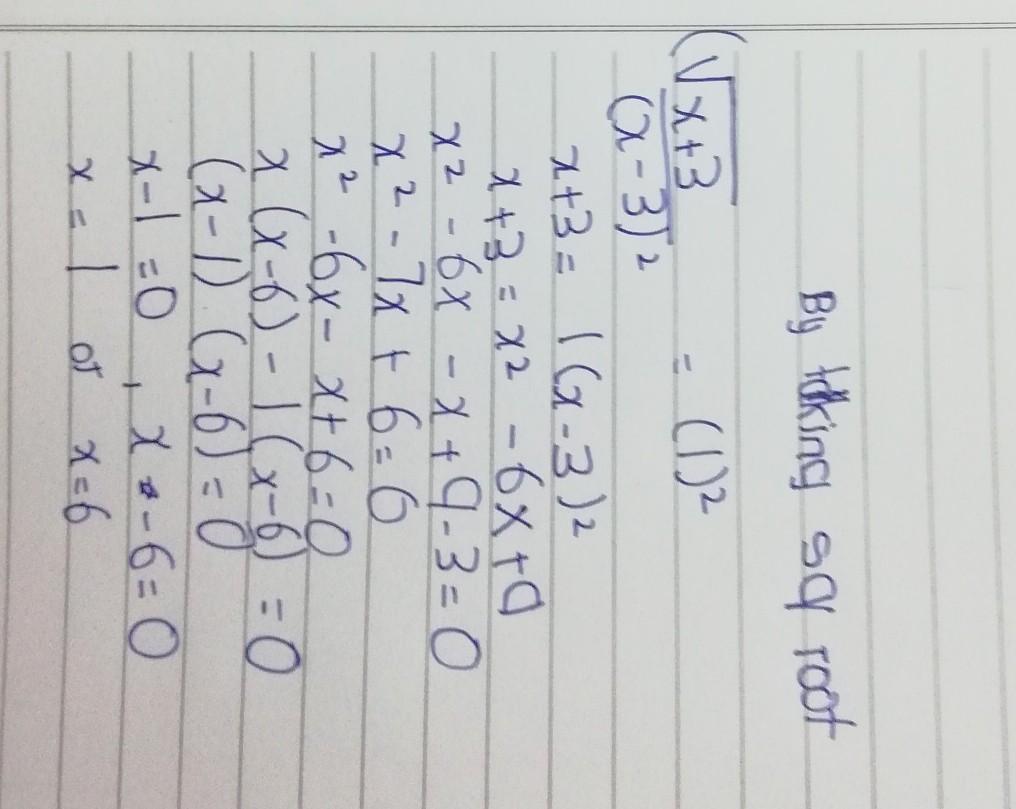 By taking sq root
(√x+3)/(x-3)² = (1)²
x+3 = 1(x-3)²
x+3 = x² - 6x+9
x² - 6x - x+9-3=0
x² - 7x + 6=6
x² -6x- x+6=0
x(x-6)-1(x-6)=0
(x-1) (x-6)=0
x-1=0, x-6=0
x=1 or x=6